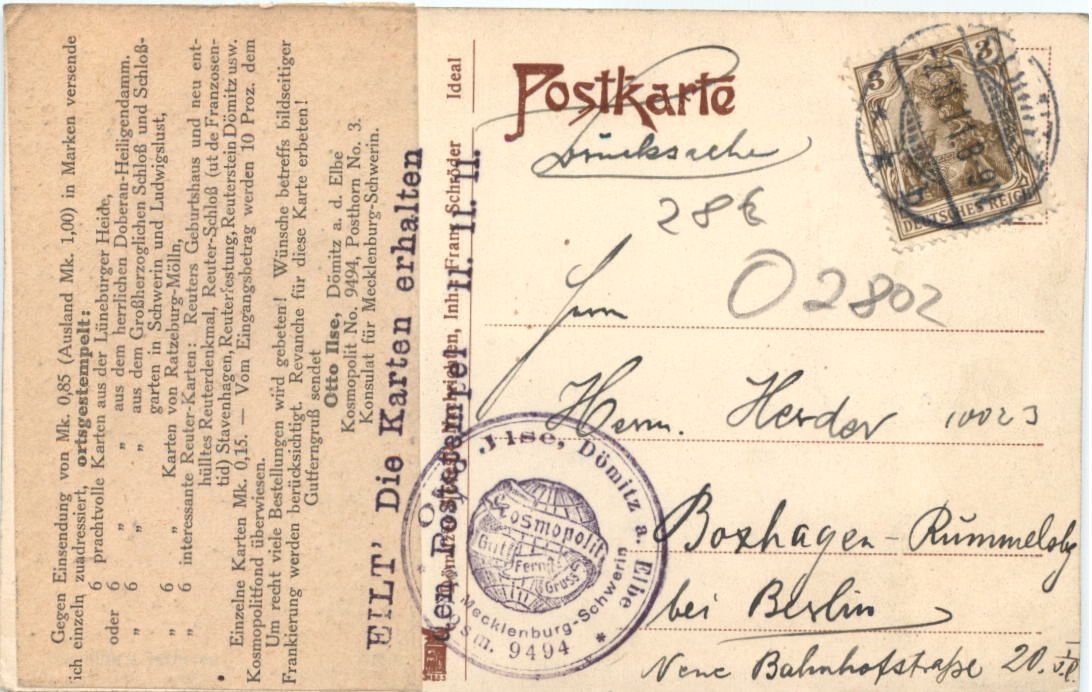 Gegen Einsendung von Mk. 0,85 (Ausland Mk. 1,00) in Marken versende
ich einzeln zuadressiert, ortsgestempelt:
6 prachtvolle Karten aus der Lüneburger Heide,
oder 6 „ „ aus dem herrlichen Doberan-Heiligendamm.
„ 6 „ „ aus dem Großherzoglichen Schloß und Schloß-
garten in Schwerin und Ludwigslust,
„ 6 „ Karten von Ratzeburg-Mölln,
„ 6 interessante Reuter-Karten: Reuters Geburtshaus und neu ent-
hülltes Reuterdenkmal, Reuter-Schloß (ut de Franzosen-
tid) Stavenhagen, Reuterfestung, Reuterstein Dömitz usw.
Einzelne Karten Mk. 0,15. — Vom Eingangsbetrag werden 10 Proz. dem
Kosmopolitfond überwiesen.
Um recht viele Bestellungen wird gebeten! Wünsche betreffs bildseitiger
Frankierung werden berücksichtigt. Revanche für diese Karte erbeten!
Gutferngruß sendet
Otto Ilse, Dömitz a. d. Elbe
Kosmopolit No. 9494, Posthorn No. 3.
Konsulat für Mecklenburg-Schwerin.
EILT! Die Karten erhalten
den Poststempel 11. 11. 11.
Inh. Franz Schröder Ideal
Postkarte
Drucksache
3 3
DEUTSCHES REICH
28€
O 2802
Herrn
Herm. Herder 10023
Boxhagen-Rummelsbg
bei Berlin
Neue Bahnhofstraße 20. I. l.
Otto Ilse, Dömitz a. Elbe
Kosmopolit
Gut
Fern
Gruss
Mecklenburg-Schwerin
* Kosm. 9494 *